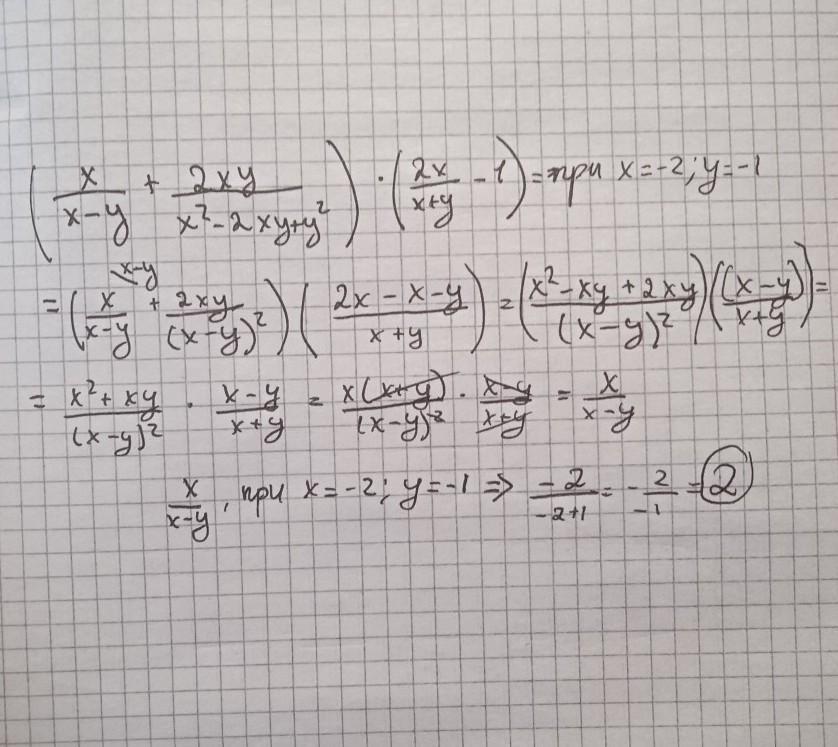 (x/(x-y) + 2xy/(x²-2xy+y²)) · (2x/(x+y) - 1) = при x=-2; y=-1
= (x/(x-y) ^(x-y) + 2xy/(x-y)²) ((2x-x-y)/(x+y)) = ((x²-xy+2xy)/(x-y)²) ((x-y)/(x+y)) =
= (x²+xy)/(x-y)² · (x-y)/(x+y) = x(x+y)/(x-y)² · (x-y)/(x+y) = x/(x-y)
x/(x-y), при x=-2; y=-1 => -2/(-2+1) = -2/-1 = 2